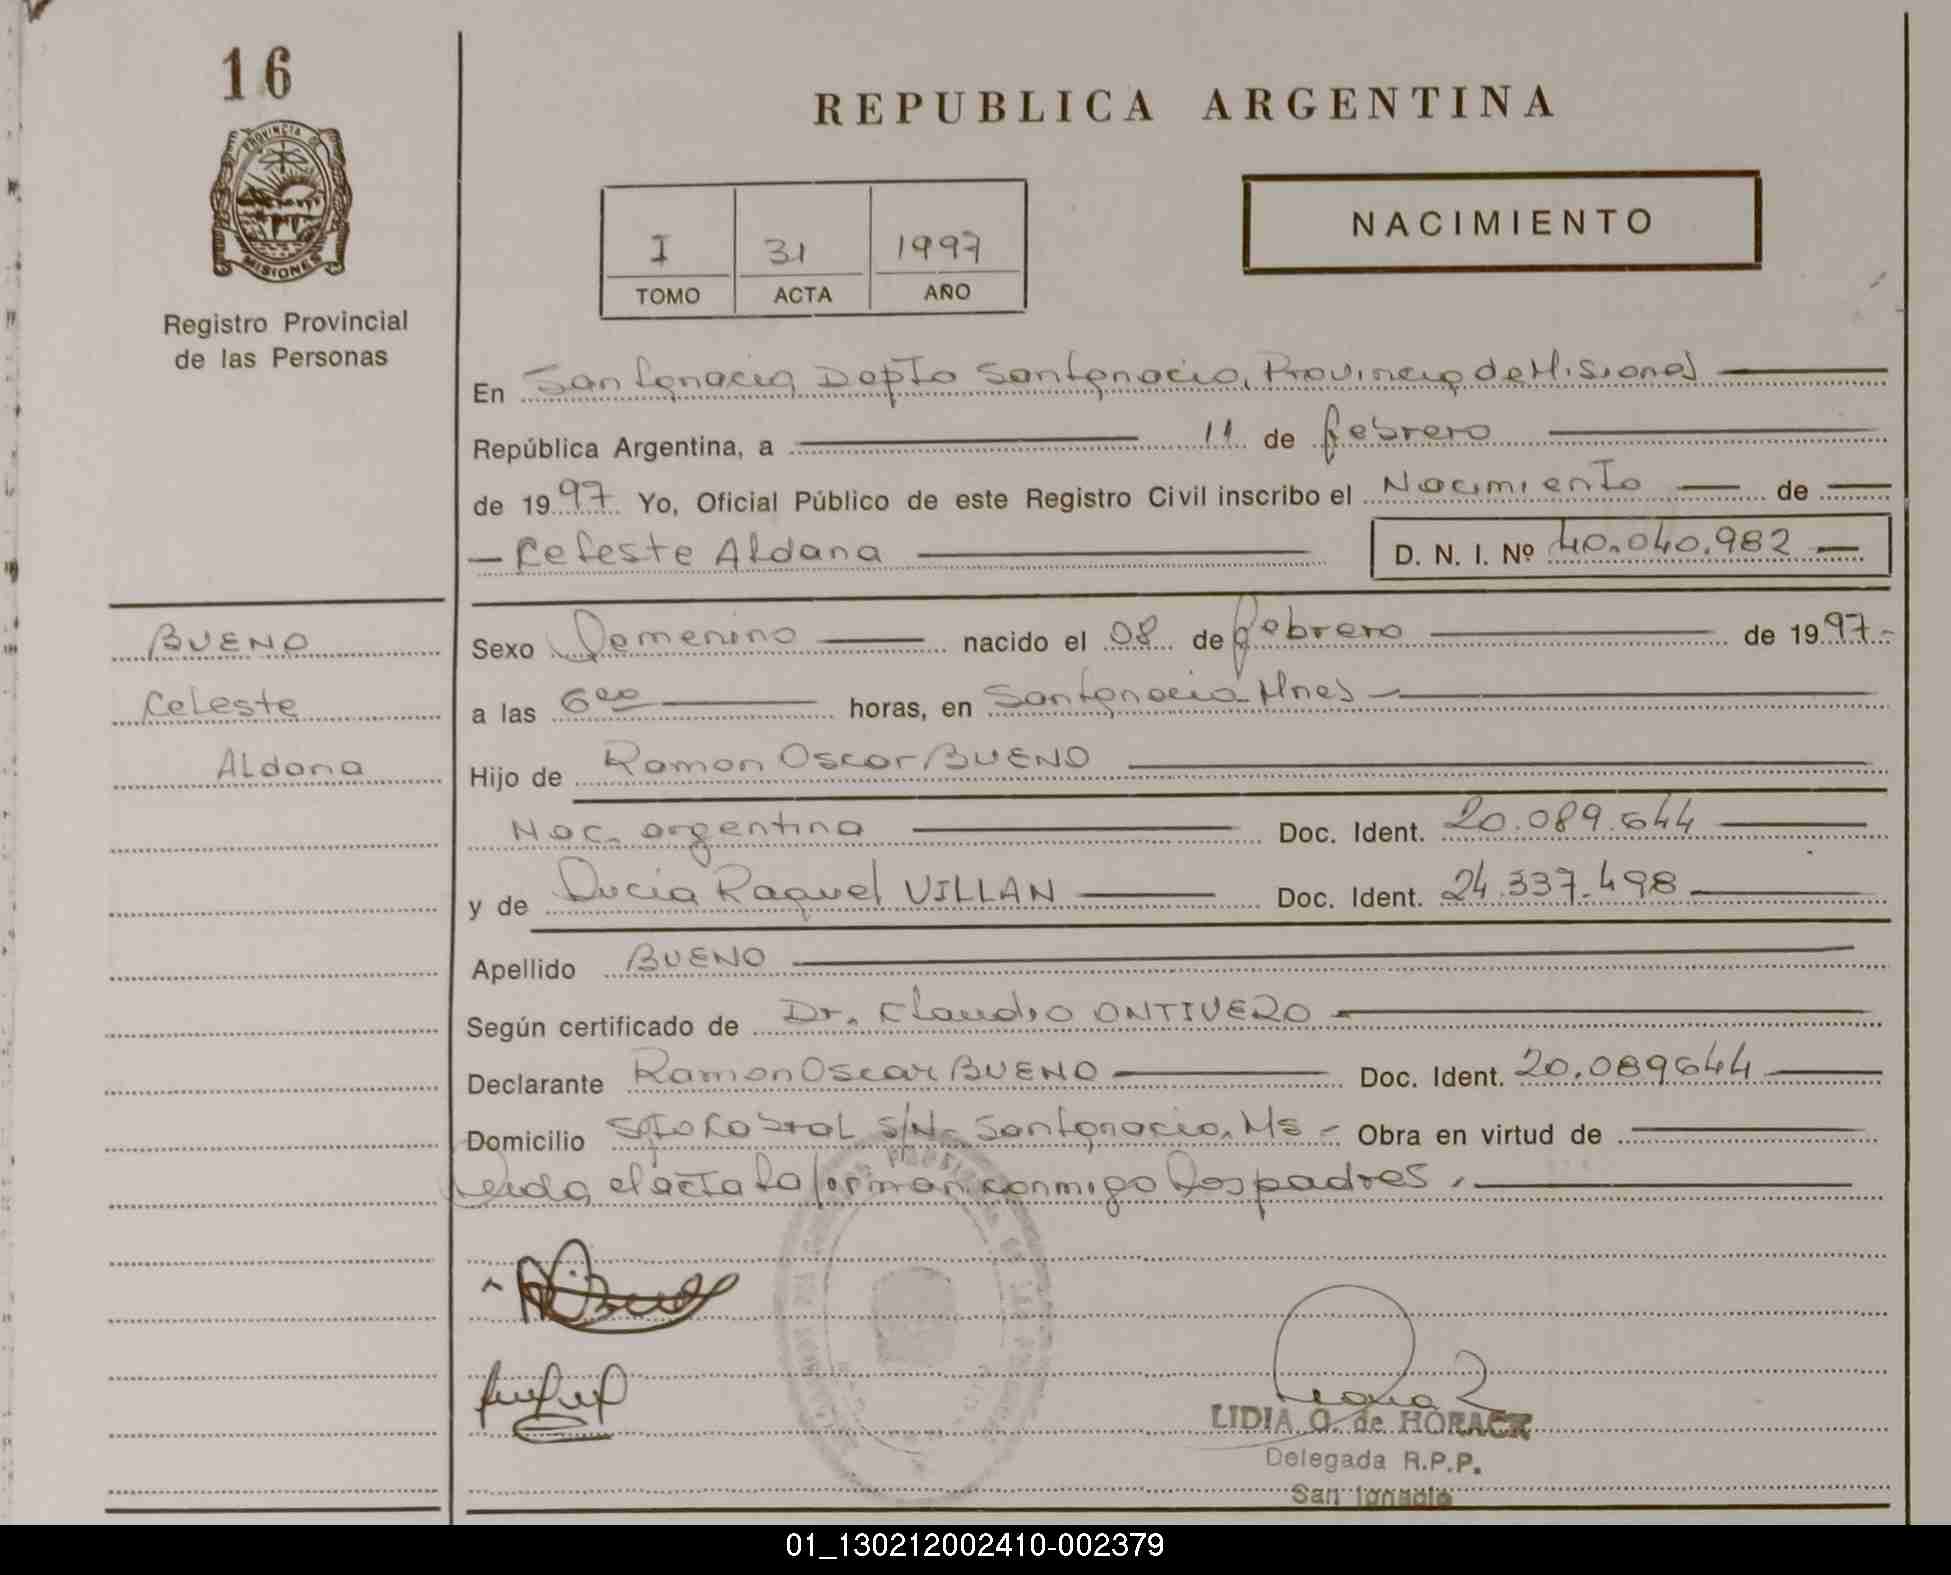 16
PROVINCIA DE
MISIONES
Registro Provincial
de las Personas
REPUBLICA ARGENTINA
NACIMIENTO
I 31 1997
TOMO ACTA AÑO
En San Ignacio, Depto San Ignacio, Provincia de Misiones
República Argentina, a 11 de febrero
de 1997 Yo, Oficial Público de este Registro Civil inscribo el Nacimiento de
Celeste Aldana D. N. I. Nº 40.040.982
BUENO
Celeste
Aldana
Sexo Femenino nacido el 08 de febrero de 1997
a las 6 00 horas, en San Ignacio Mnes
Hijo de Ramon Oscar BUENO
Nac. argentina Doc. Ident. 20.089.644
y de Lucia Raquel VILLAN Doc. Ident. 24.337.498
Apellido BUENO
Según certificado de Dr. Claudio ONTIVERO
Declarante Ramon Oscar BUENO Doc. Ident. 20.089644
Domicilio Sgto Cabral S/N- San Ignacio, Ms - Obra en virtud de
Leida el acta la firman conmigo los padres.
LIDIA O. de HORACK
Delegada R.P.P.
San Ignacio
01_130212002410-002379